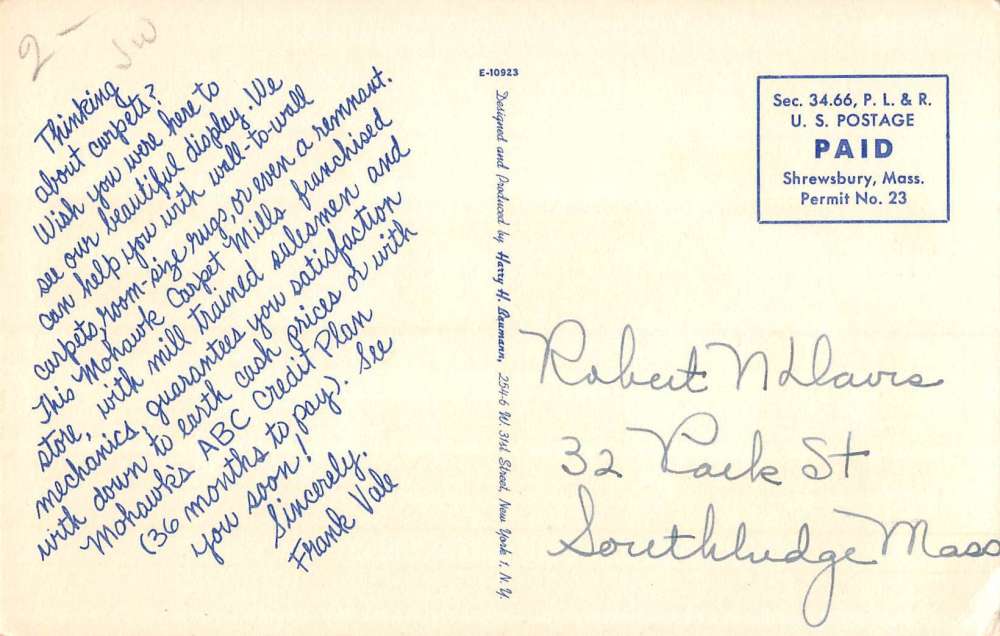 2-
Thinking
about carpets?
Wish you were here to
see our beautiful display. We
can help you with wall-to-wall
carpets, room-size rugs, or even a remnant.
This Mohawk Carpet Mills franchised
store, with mill trained salesmen and
mechanics, guarantees you satisfaction
with down to earth cash prices or with
Mohawk's ABC Credit Plan
(36 months to pay). See
you soon!
Sincerely,
Frank Vale
E-10923
Designed and Produced by Harry H. Baumann, 254-6 W. 31st Street, New York 1, N.Y.
Sec. 34.66, P. L. & R.
U. S. POSTAGE
PAID
Shrewsbury, Mass.
Permit No. 23
Robert N Davis
32 Park St
Southbridge Mass